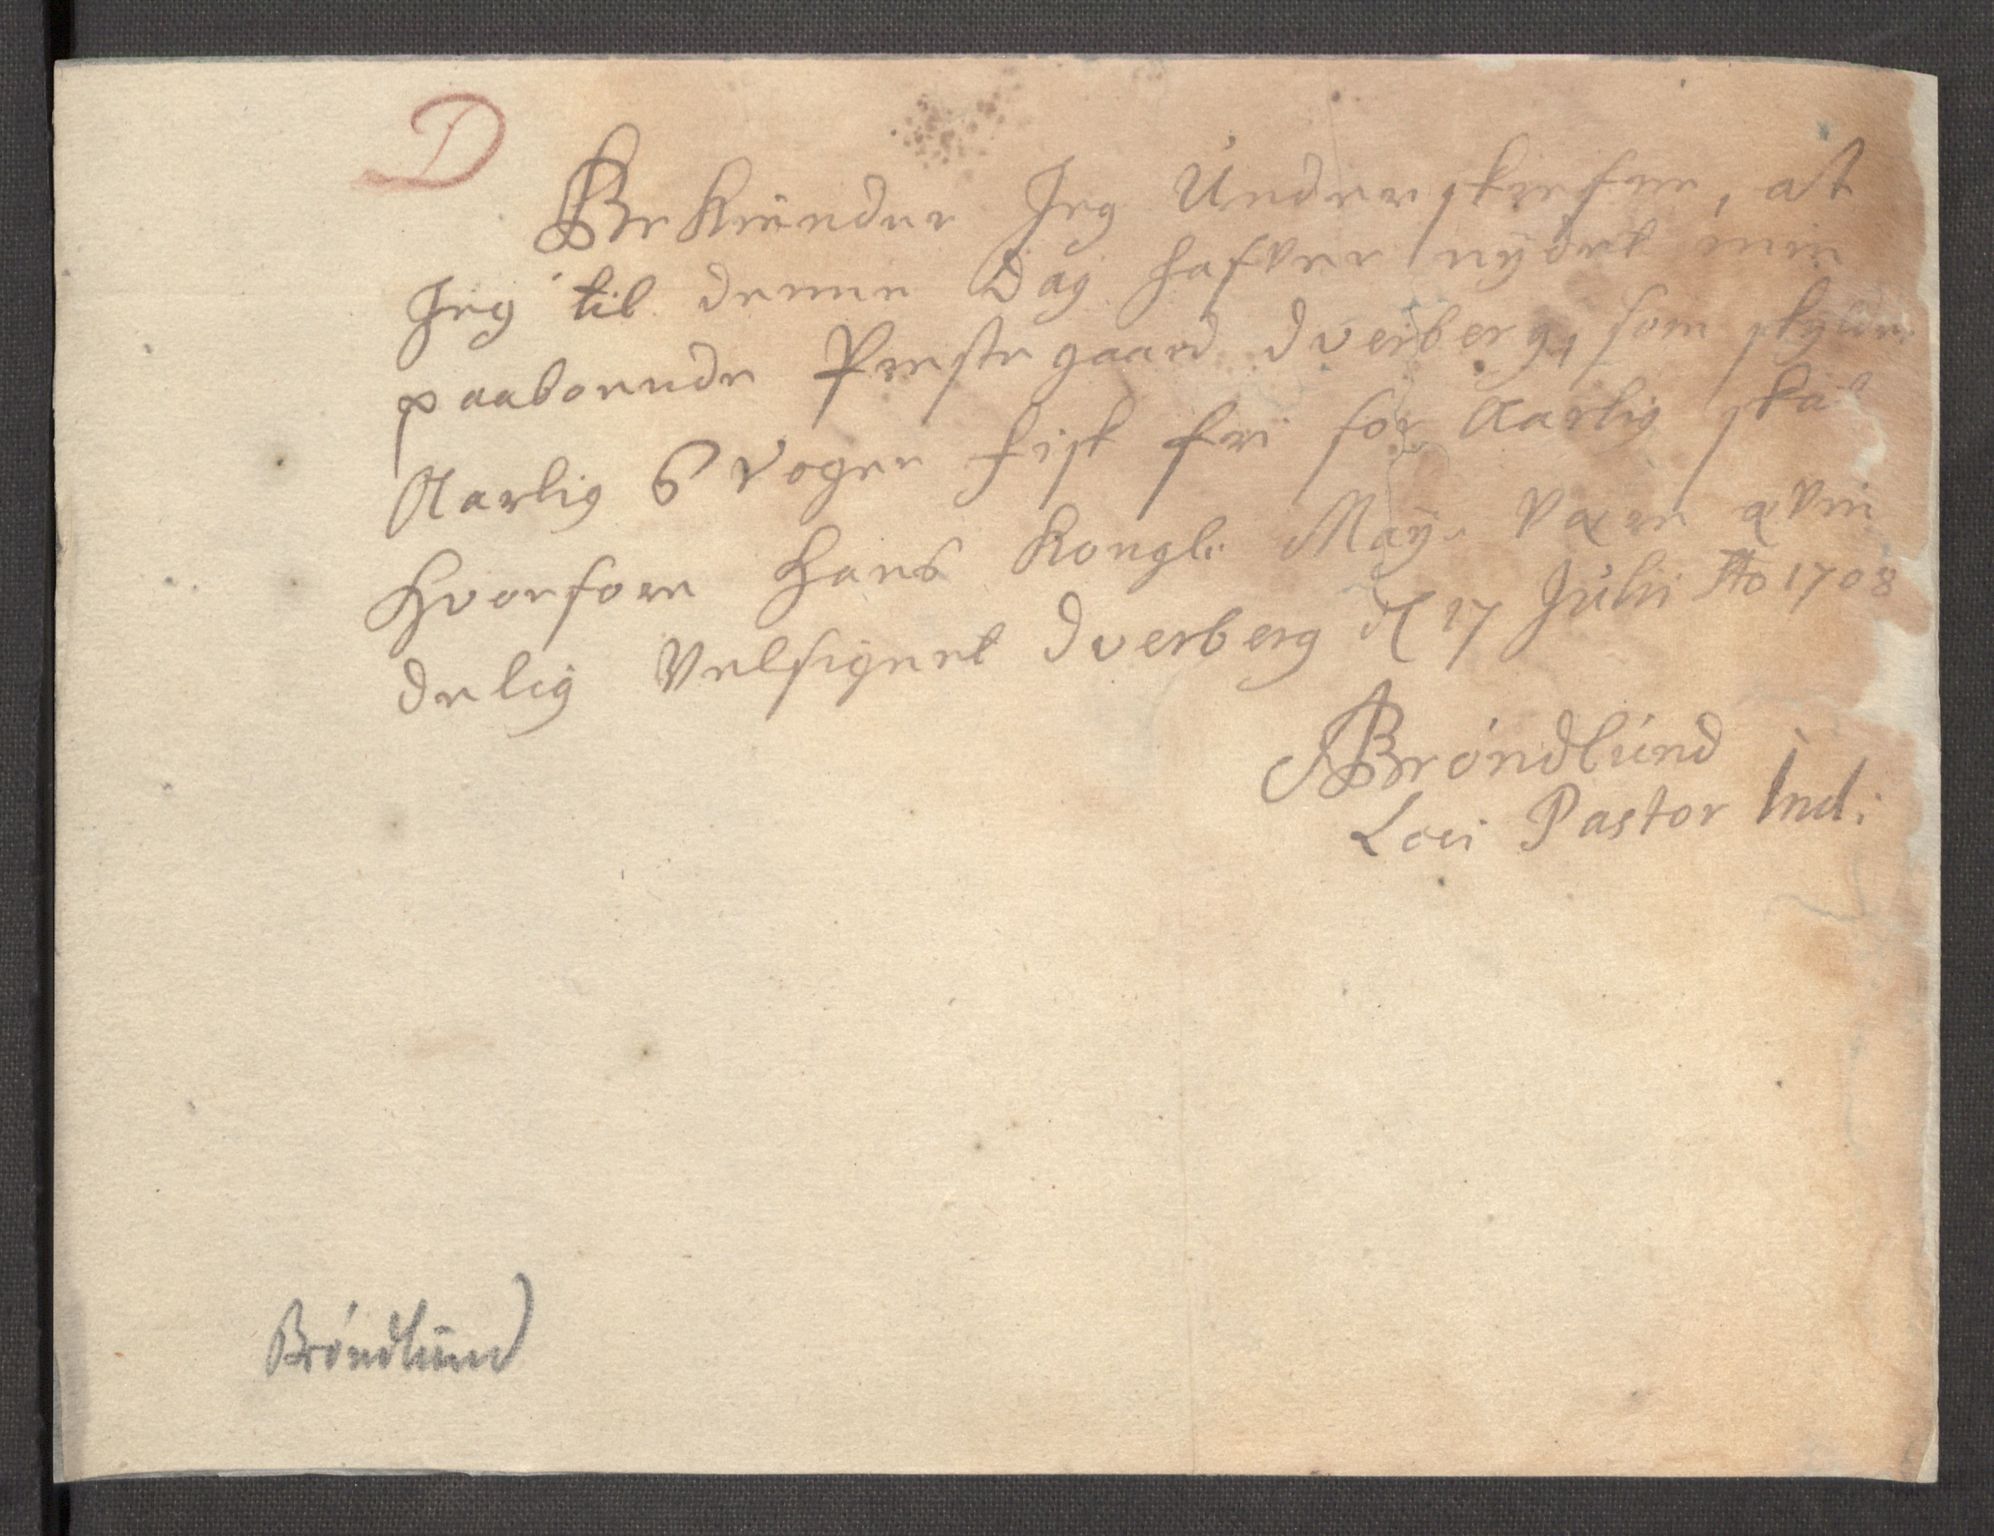 D
Bekiender Jeg Underskrefne, at
Jeg til denne Dag hafver nÿdet min
paaboende Prestegaard Dverberg, som skylder
Aarlig 6 voger fisk fri for Aarlig skat
Hvorfore Hans Kongl: Maÿ. være ævin
delig Velsignet Dverberg d 17 Julii Ao 1708
ABróndlund
Loci Pastor Ind:
Bróndlund